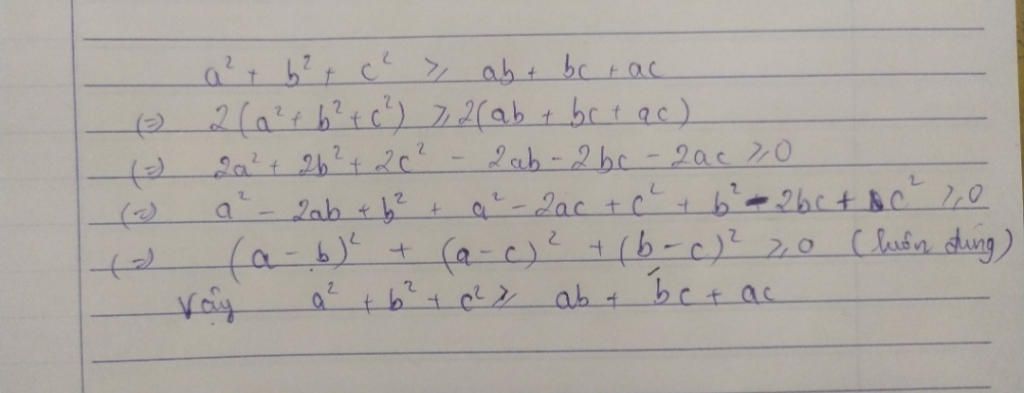 a² + b² + c² ⩾ ab + bc + ac
(=) 2(a² + b² + c²) ⩾ 2(ab + bc + ac)
(=) 2a² + 2b² + 2c² - 2ab - 2bc - 2ac ⩾ 0
(=) a² - 2ab + b² + a² - 2ac + c² + b² - 2bc + c² ⩾ 0
(=) (a - b)² + (a - c)² + (b - c)² ⩾ 0 (luôn đúng)
Vậy a² + b² + c² ⩾ ab + bc + ac